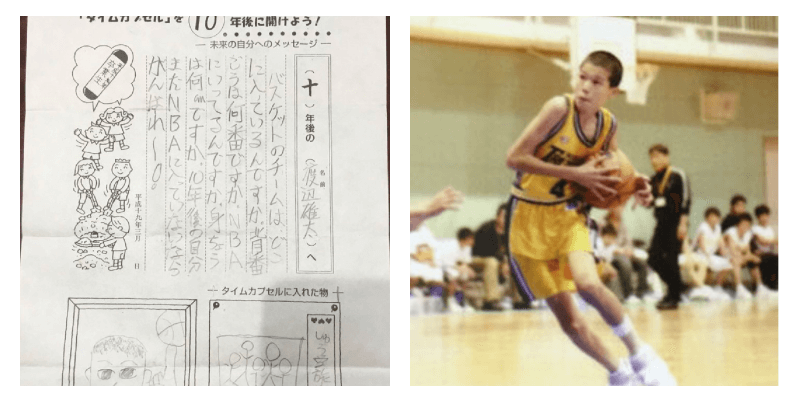 「タイムカプセル」を10年後に開けよう！
未来の自分へのメッセージ
（十）年後の（渡辺雄太）へ
名前
バスケットのチームは、どこ
に入ているんですか、背番
ごうは何番ですか、NBA
にいってるんですか、身ちょう
は何cmですか、10年後の自分
またNBAに入ていなかったら
がんばれ〜！
平成十九年三月　日
タイムカプセルに入れた物
4